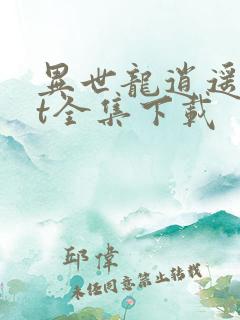 異世龍逍遥
t全集下载
邱偉
未经同意禁止转载